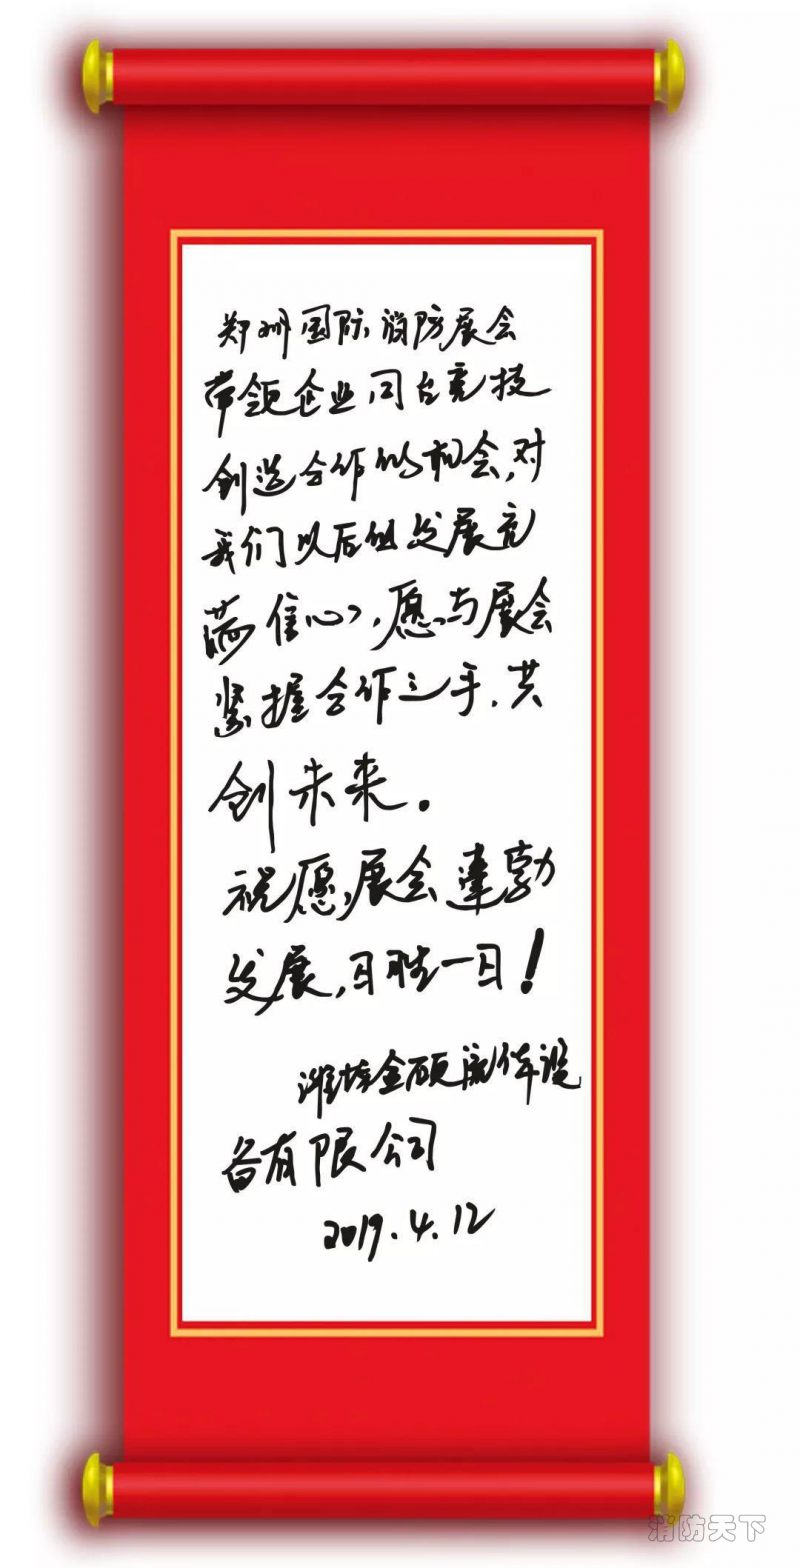 郑州国际消防展会
带领企业同台竞技
创造合作的机会,对
我们以后的发展充
满信心,愿与展会
紧握合作之手,共
创未来。
祝愿展会蓬勃
发展,日胜一日!
潍坊金硕流体设
备有限公司
2019.4.12
消防天下